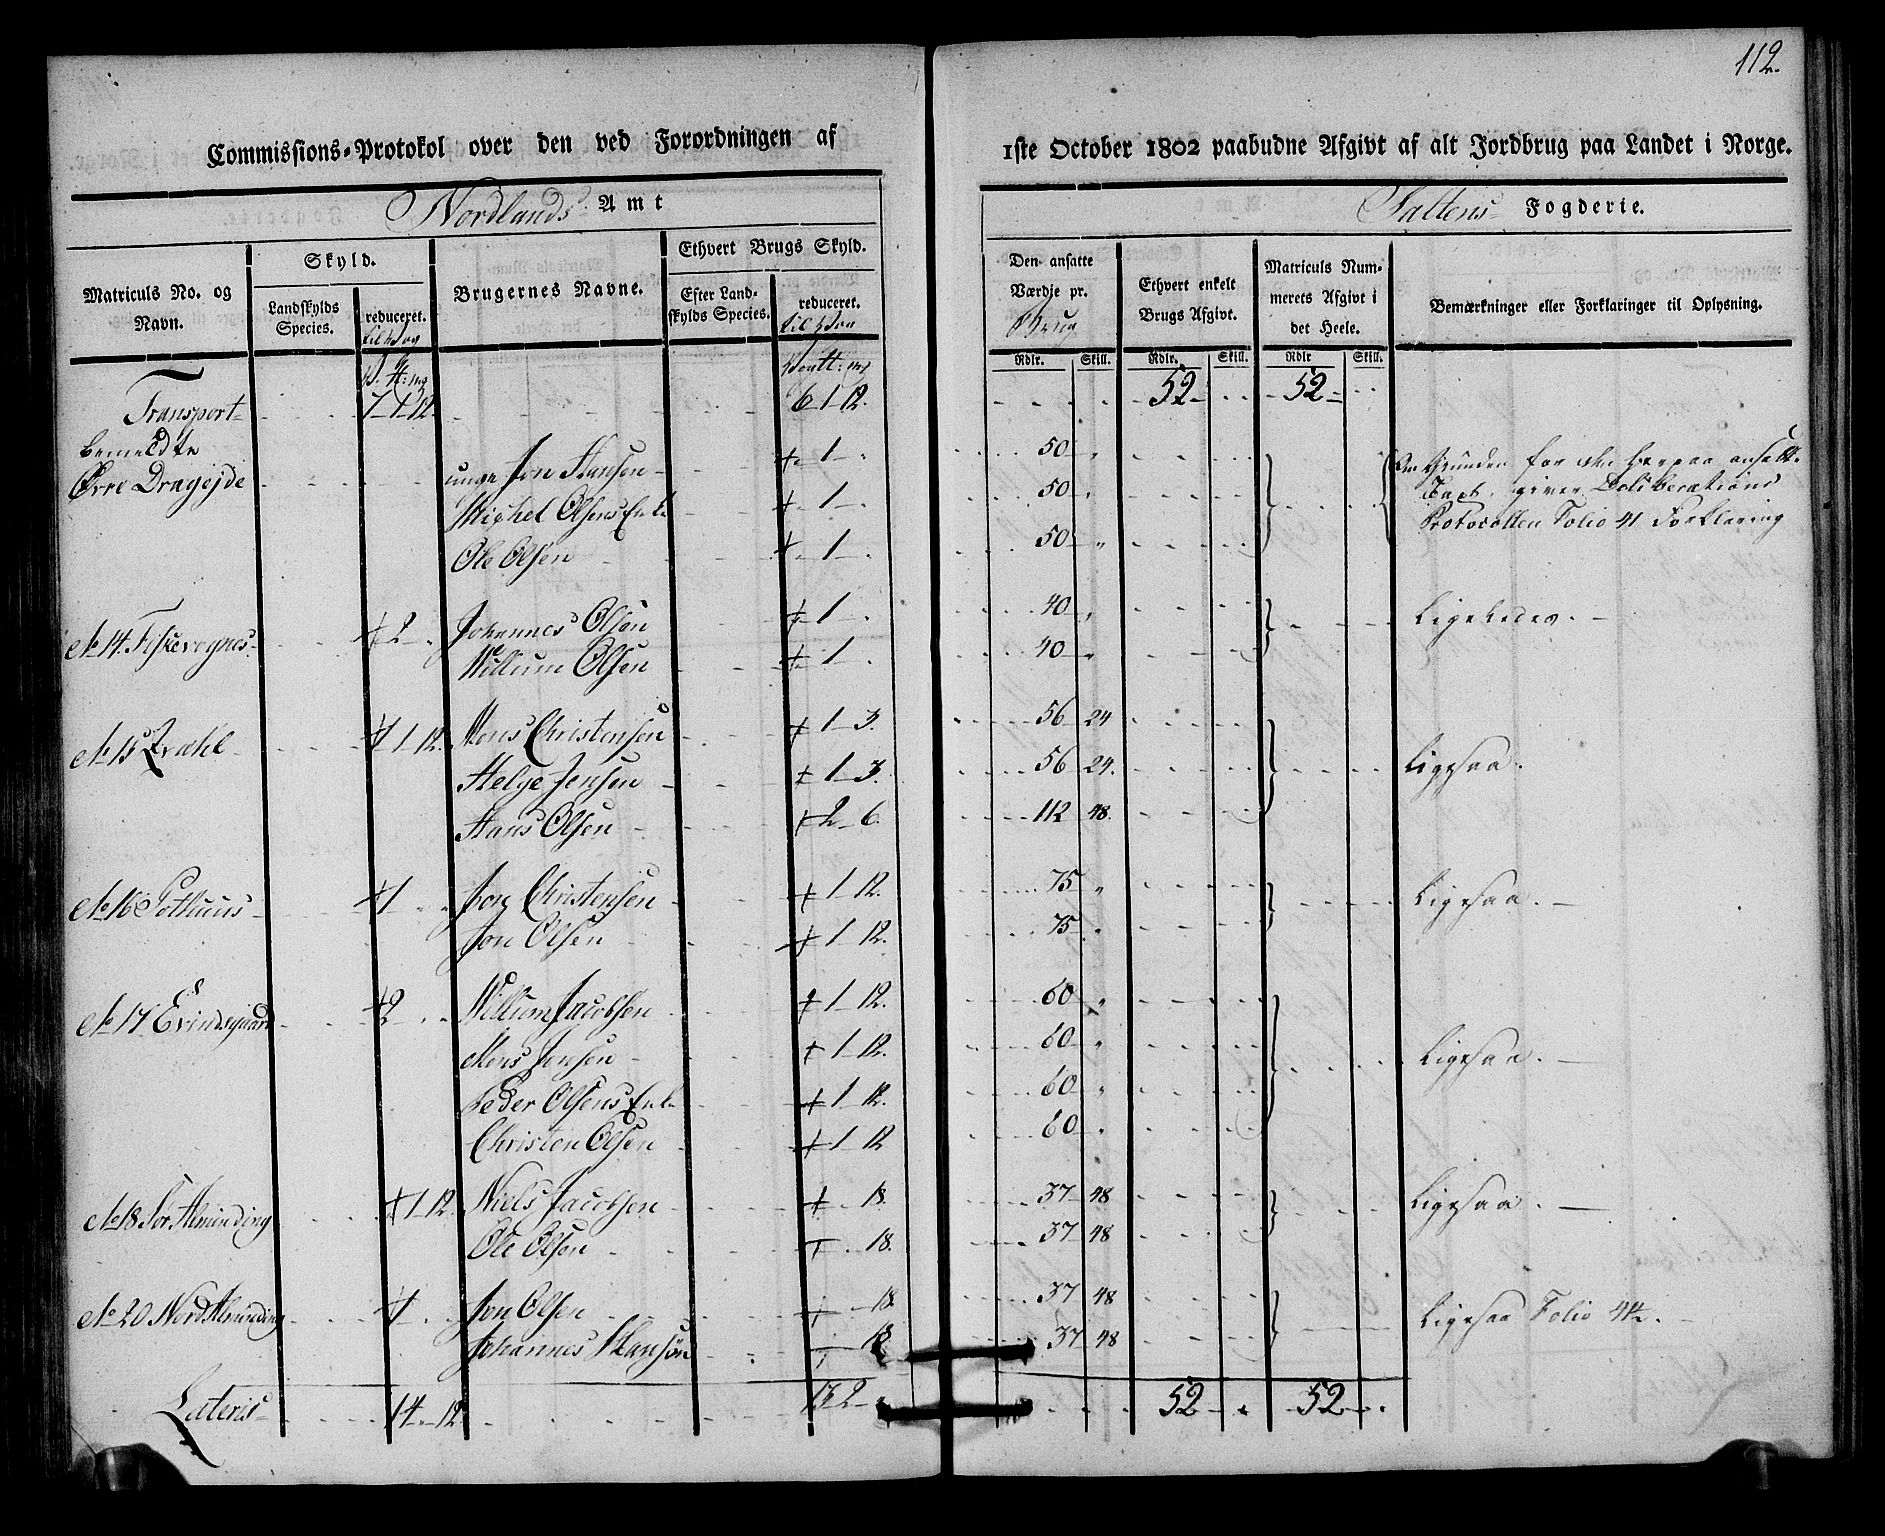 112.
Commissions-Protokol over den ved Forordningen af 1ste October 1802 paabudne Afgivt af alt Jordbrug paa Landet i Norge.
Nordlands Amt
Saltens Fogderie.
Matriculs No. og Navn.
Skyld.
Landskylds Species.
reduceret.
Brugernes Navne.
Ethvert Brugs Skyld.
Efter Landskylds Species.
reduceret.
Den ansatte Værdje pr. Brug
Ethvert enkelt Brugs Afgivt.
Matriculs Nummerets Afgivt i det Heele.
Bemærkninger eller Forklaringer til Oplysning.
Rdlr. Skill. Rdlr. Skill. Rdlr Skill.
Transport 7 1 12 6 1 12. 52 52
bemeldte
Øvre Dragejde unge Jon Hansen 1 50
Michel Olsens Enke 1 50
Ole Olsen 1 50
Om Grunden for den herpaa ansatte
Taxt, giver Deliberations
Protocollen Folio 41 Forklaring
No 14 Fiskevognes 2 Johannes Olsen 1 40 Ligeledes.
Willum Olsen 1 40
No 15 1 12. Mons Christensen 1 3. 56 24
Helge Jensen 1 3. 56 24. Ligesaa.
Hans Olsen 2 6. 112 48.
No 16 Pothuus 1 Jon Christensen 1 12. 75 Ligesaa.
Jon Olsen 1 12. 75
No 17 Evindsgaard 2 Willum Jacobsen 1 12. 60
Mons Jonsen 1 12. 60 Ligesaa.
Peder Olsens Enke 1 12. 60
Christen Olsen 1 12 60
No 18 Sør Alminding 1 12. Niels Jacobsen 18. 37 48 Ligesaa.
Ole Olsen 18. 37 48
No 20 Nord Alminding Jon Olsen 18. 37 48 Ligesaa Folio 44.
Johannes Hansøn 18 37 48
Lateris 14 12. 52 52